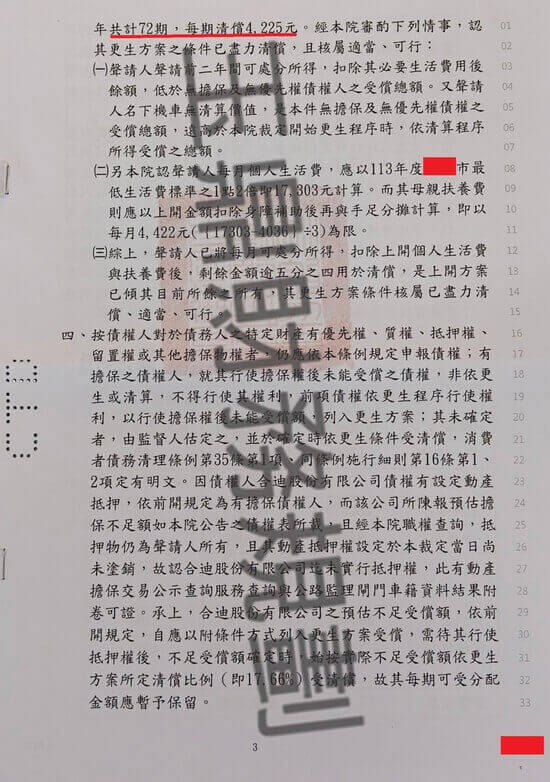 年共計72期，每期清償4,225元。經本院審酌下列情事，認 01
其更生方案之條件已盡力清償，且核屬適當、可行： 02
㈠聲請人聲請前二年間可處分所得，扣除其必要生活費用後 03
餘額，低於無擔保及無優先權債權人之受償總額。又聲請 04
人名下機車無清算價值，是本件無擔保及無優先權債權之 05
受償總額，遠高於本院裁定開始更生程序時，依清算程序 06
所得受償之總額。 07
㈡另本院認聲請人每月個人生活費，應以113年度 市最 08
低生活費標準之1點2倍即17,303元計算。而其母親扶養費 09
則應以上開金額扣除身障補助後再與手足分攤計算，即以 10
每月4,422元(〔17303-4036〕÷3)為限。 11
㈢綜上，聲請人已將每月可處分所得，扣除上開個人生活費 12
與扶養費後，剩餘金額逾五分之四用於清償，是上開方案 13
已傾其目前所餘之所有，其更生方案條件核屬已盡力清 14
償、適當、可行。 15
四、按債權人對於債務人之特定財產有優先權、質權、抵押權、 16
留置權或其他擔保物權者，仍應依本條例規定申報債權；有 17
擔保之債權人，就其行使擔保權後未能受償之債權，非依更 18
生或清算，不得行使其權利，前項債權依更生程序行使權 19
利，以行使擔保權後未能受償額，列入更生方案；其未確定 20
者，由監督人估定之，並於確定時依更生條件受清償，消費 21
者債務清理條例第35條第1項、同條例施行細則第16條第1、 22
2項定有明文。因債權人合迪股份有限公司債權有設定動產 23
抵押，依前開規定為有擔保債權人，而該公司所陳報預估擔 24
保不足額如本院公告之債權表所載，且經本院職權查詢，抵 25
押物仍為聲請人所有，且其動產抵押權設定於本裁定當日尚 26
未塗銷，故認合迪股份有限公司迄未實行抵押權，此有動產 27
擔保交易公示查詢服務查詢與公路監理閘門車籍資料結果附 28
卷可證。承上，合迪股份有限公司之預估不足受償額，依前 29
開規定，自應以附條件方式列入更生方案受償，需待其行使 30
抵押權後，不足受償額確定時，始按實際不足受償額依更生 31
方案所定清償比例（即17.66%）受清償，故其每期可受分配 32
金額應暫予保留。 33
3